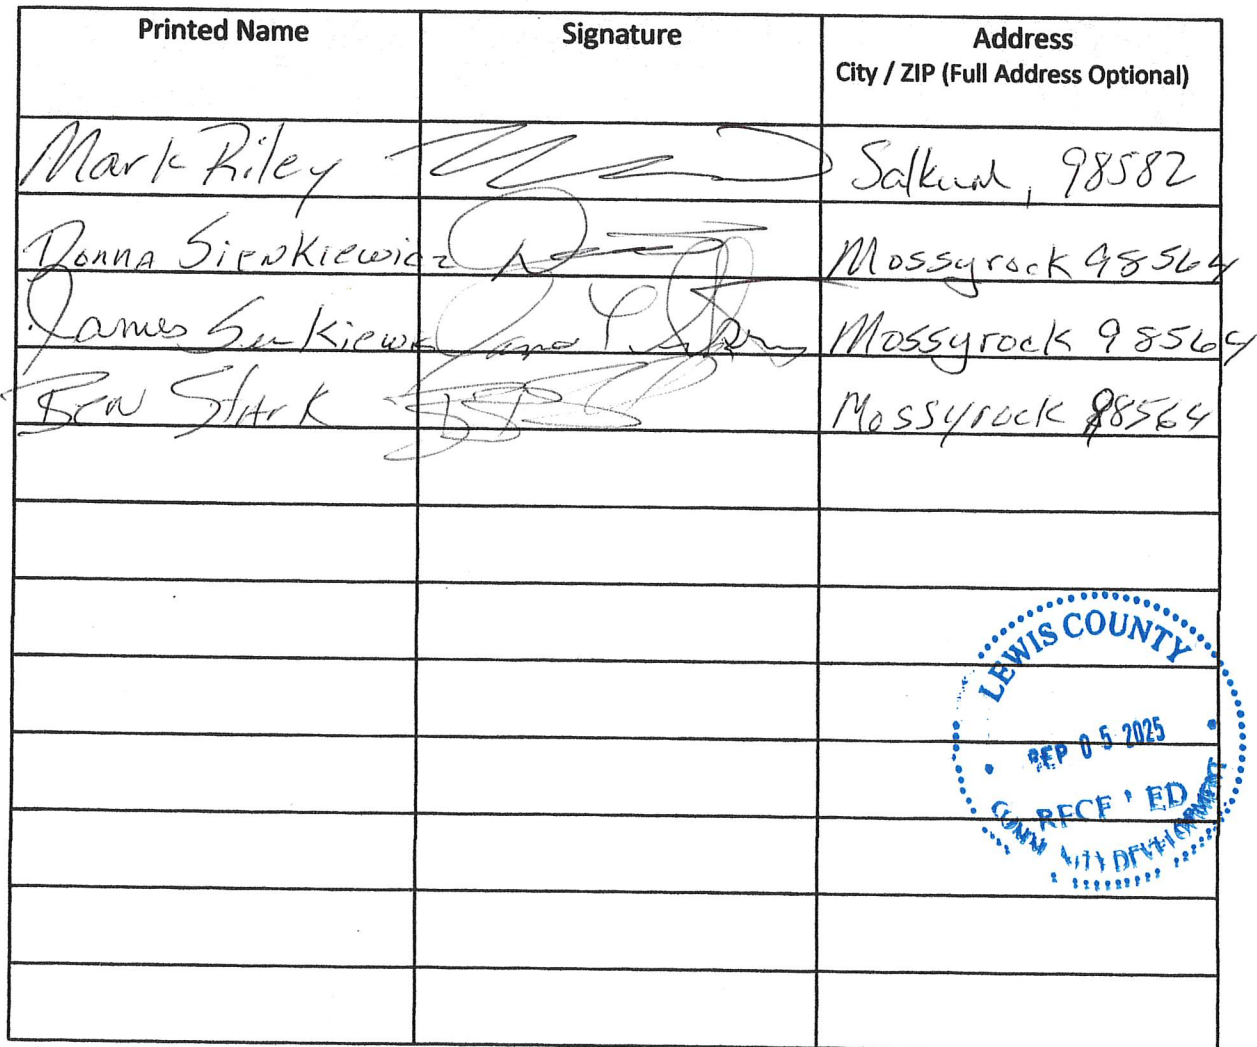 Printed Name Signature Address
City / ZIP (Full Address Optional)
Mark Riley Salkum, 98582
Donna Sienkiewicz Mossyrock 98564
James Mossyrock 98564
Ben Stark Mossyrock 98564
LEWIS COUNTY
SEP 05 2025
RECE ' ED
DEVELOPMENT